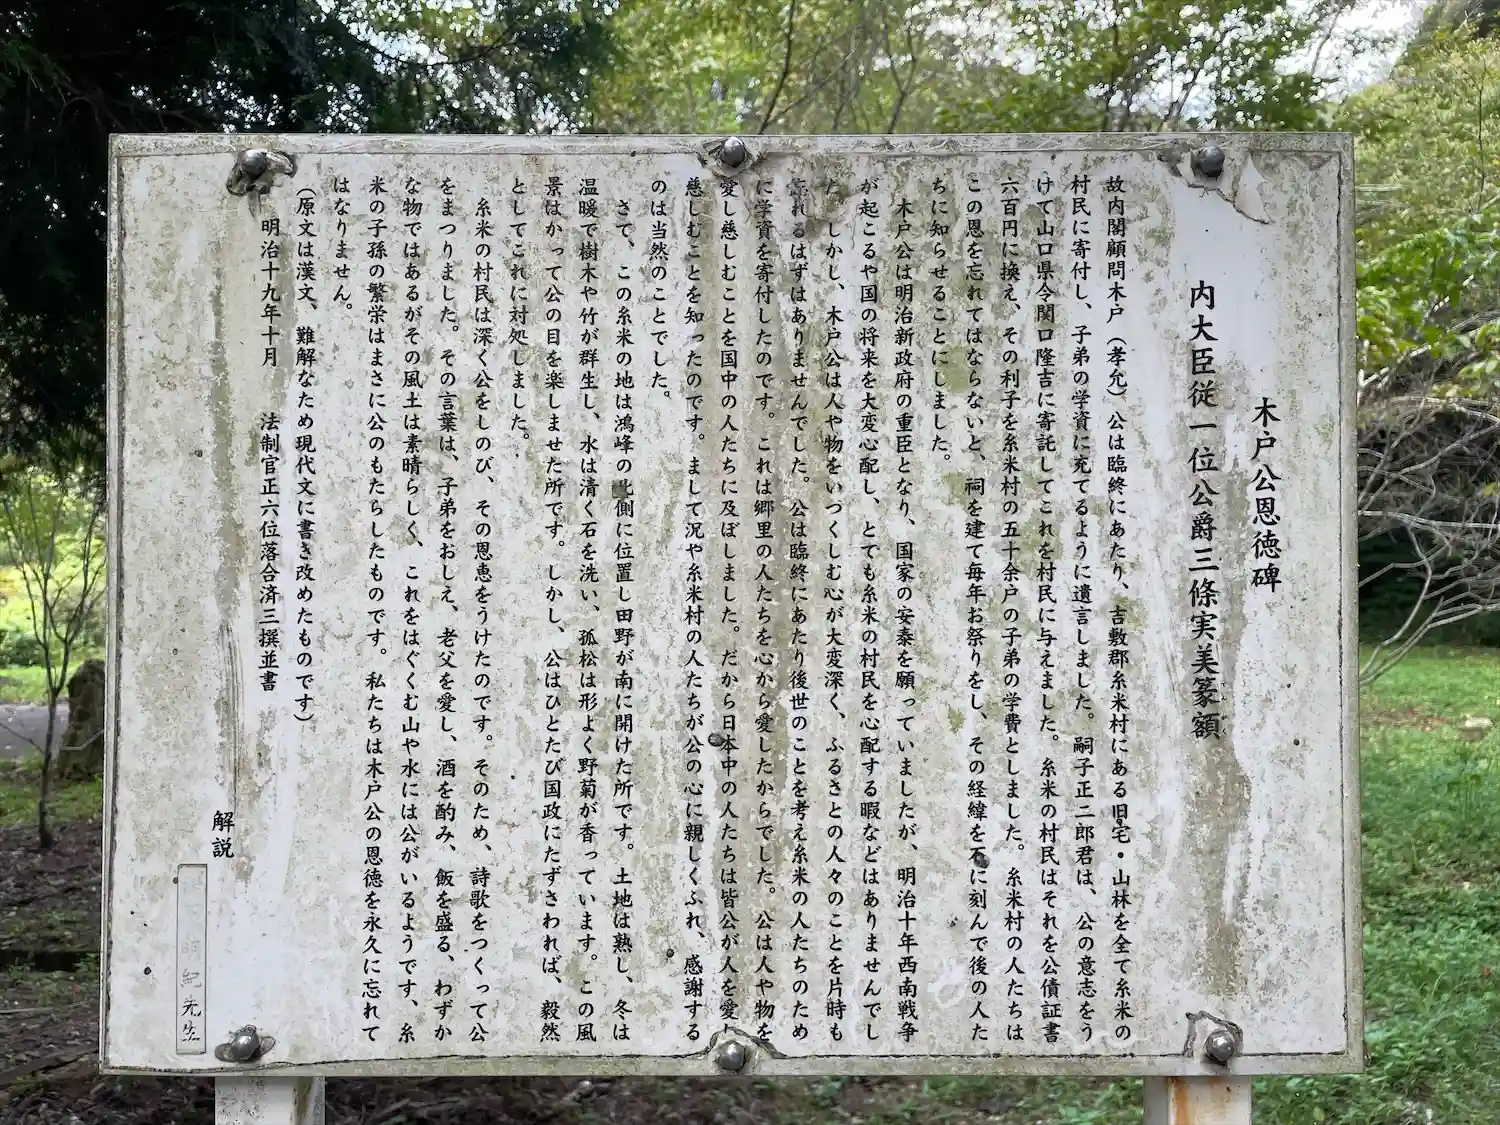 木戸公恩徳碑
内大臣従一位公爵三條実美篆額
故内閣顧問木戸（孝允）公は臨終にあたり、吉敷郡糸米村にある旧宅・山林を全て糸米の
村民に寄付し、子弟の学資に充てるように遺言しました。嗣子正二郎君は、公の意志をう
けて山口県令関口隆吉に寄託してこれを村民に与えました。糸米の村民はそれを公債証書
六百円に換え、その利子を糸米村の五十余戸の子弟の学費としました。糸米村の人たちは
この恩を忘れてはならないと、祠を建て毎年お祭りをし、その経緯を石に刻んで後の人た
ちに知らせることにしました。
木戸公は明治新政府の重臣となり、国家の安泰を願っていましたが、明治十年西南戦争
が起こるや国の将来を大変心配し、とても糸米の村民を心配する暇などはありませんでし
た。しかし、木戸公は人や物をいつくしむ心が大変深く、ふるさとの人々のことを片時も
忘れるはずはありませんでした。公は臨終にあたり後世のことを考え糸米の人たちのため
に学資を寄付したのです。これは郷里の人たちを心から愛したからでした。公は人や物を
愛し慈しむことを国中の人たちに及ぼしました。だから日本中の人たちは皆公が人を愛し
慈しむことを知ったのです。まして況や糸米村の人たちが公の心に親しくふれ、感謝する
のは当然のことでした。
さて、この糸米の地は鴻峰の北側に位置し田野が南に開けた所です。土地は熟し、冬は
温暖で樹木や竹が群生し、水は清く石を洗い、孤松は形よく野菊が香っています。この風
景はかって公の目を楽しませた所です。しかし、公はひとたび国政にたずさわれば、毅然
としてこれに対処しました。
糸米の村民は深く公をしのび、その恩恵をうけたのです。そのため、詩歌をつくって公
をまつりました。その言葉は、子弟をおしえ、老父を愛し、酒を酌み、飯を盛る、わずか
な物ではあるがその風土は素晴らしく、これをはぐくむ山や水には公がいるようです、糸
米の子孫の繁栄はまさに公のもたらしたものです。私たちは木戸公の恩徳を永久に忘れて
はなりません。
（原文は漢文、難解なため現代文に書き改めたものです）
明治十九年十月　法制官正六位落合済三撰並書
解説
明紀元生